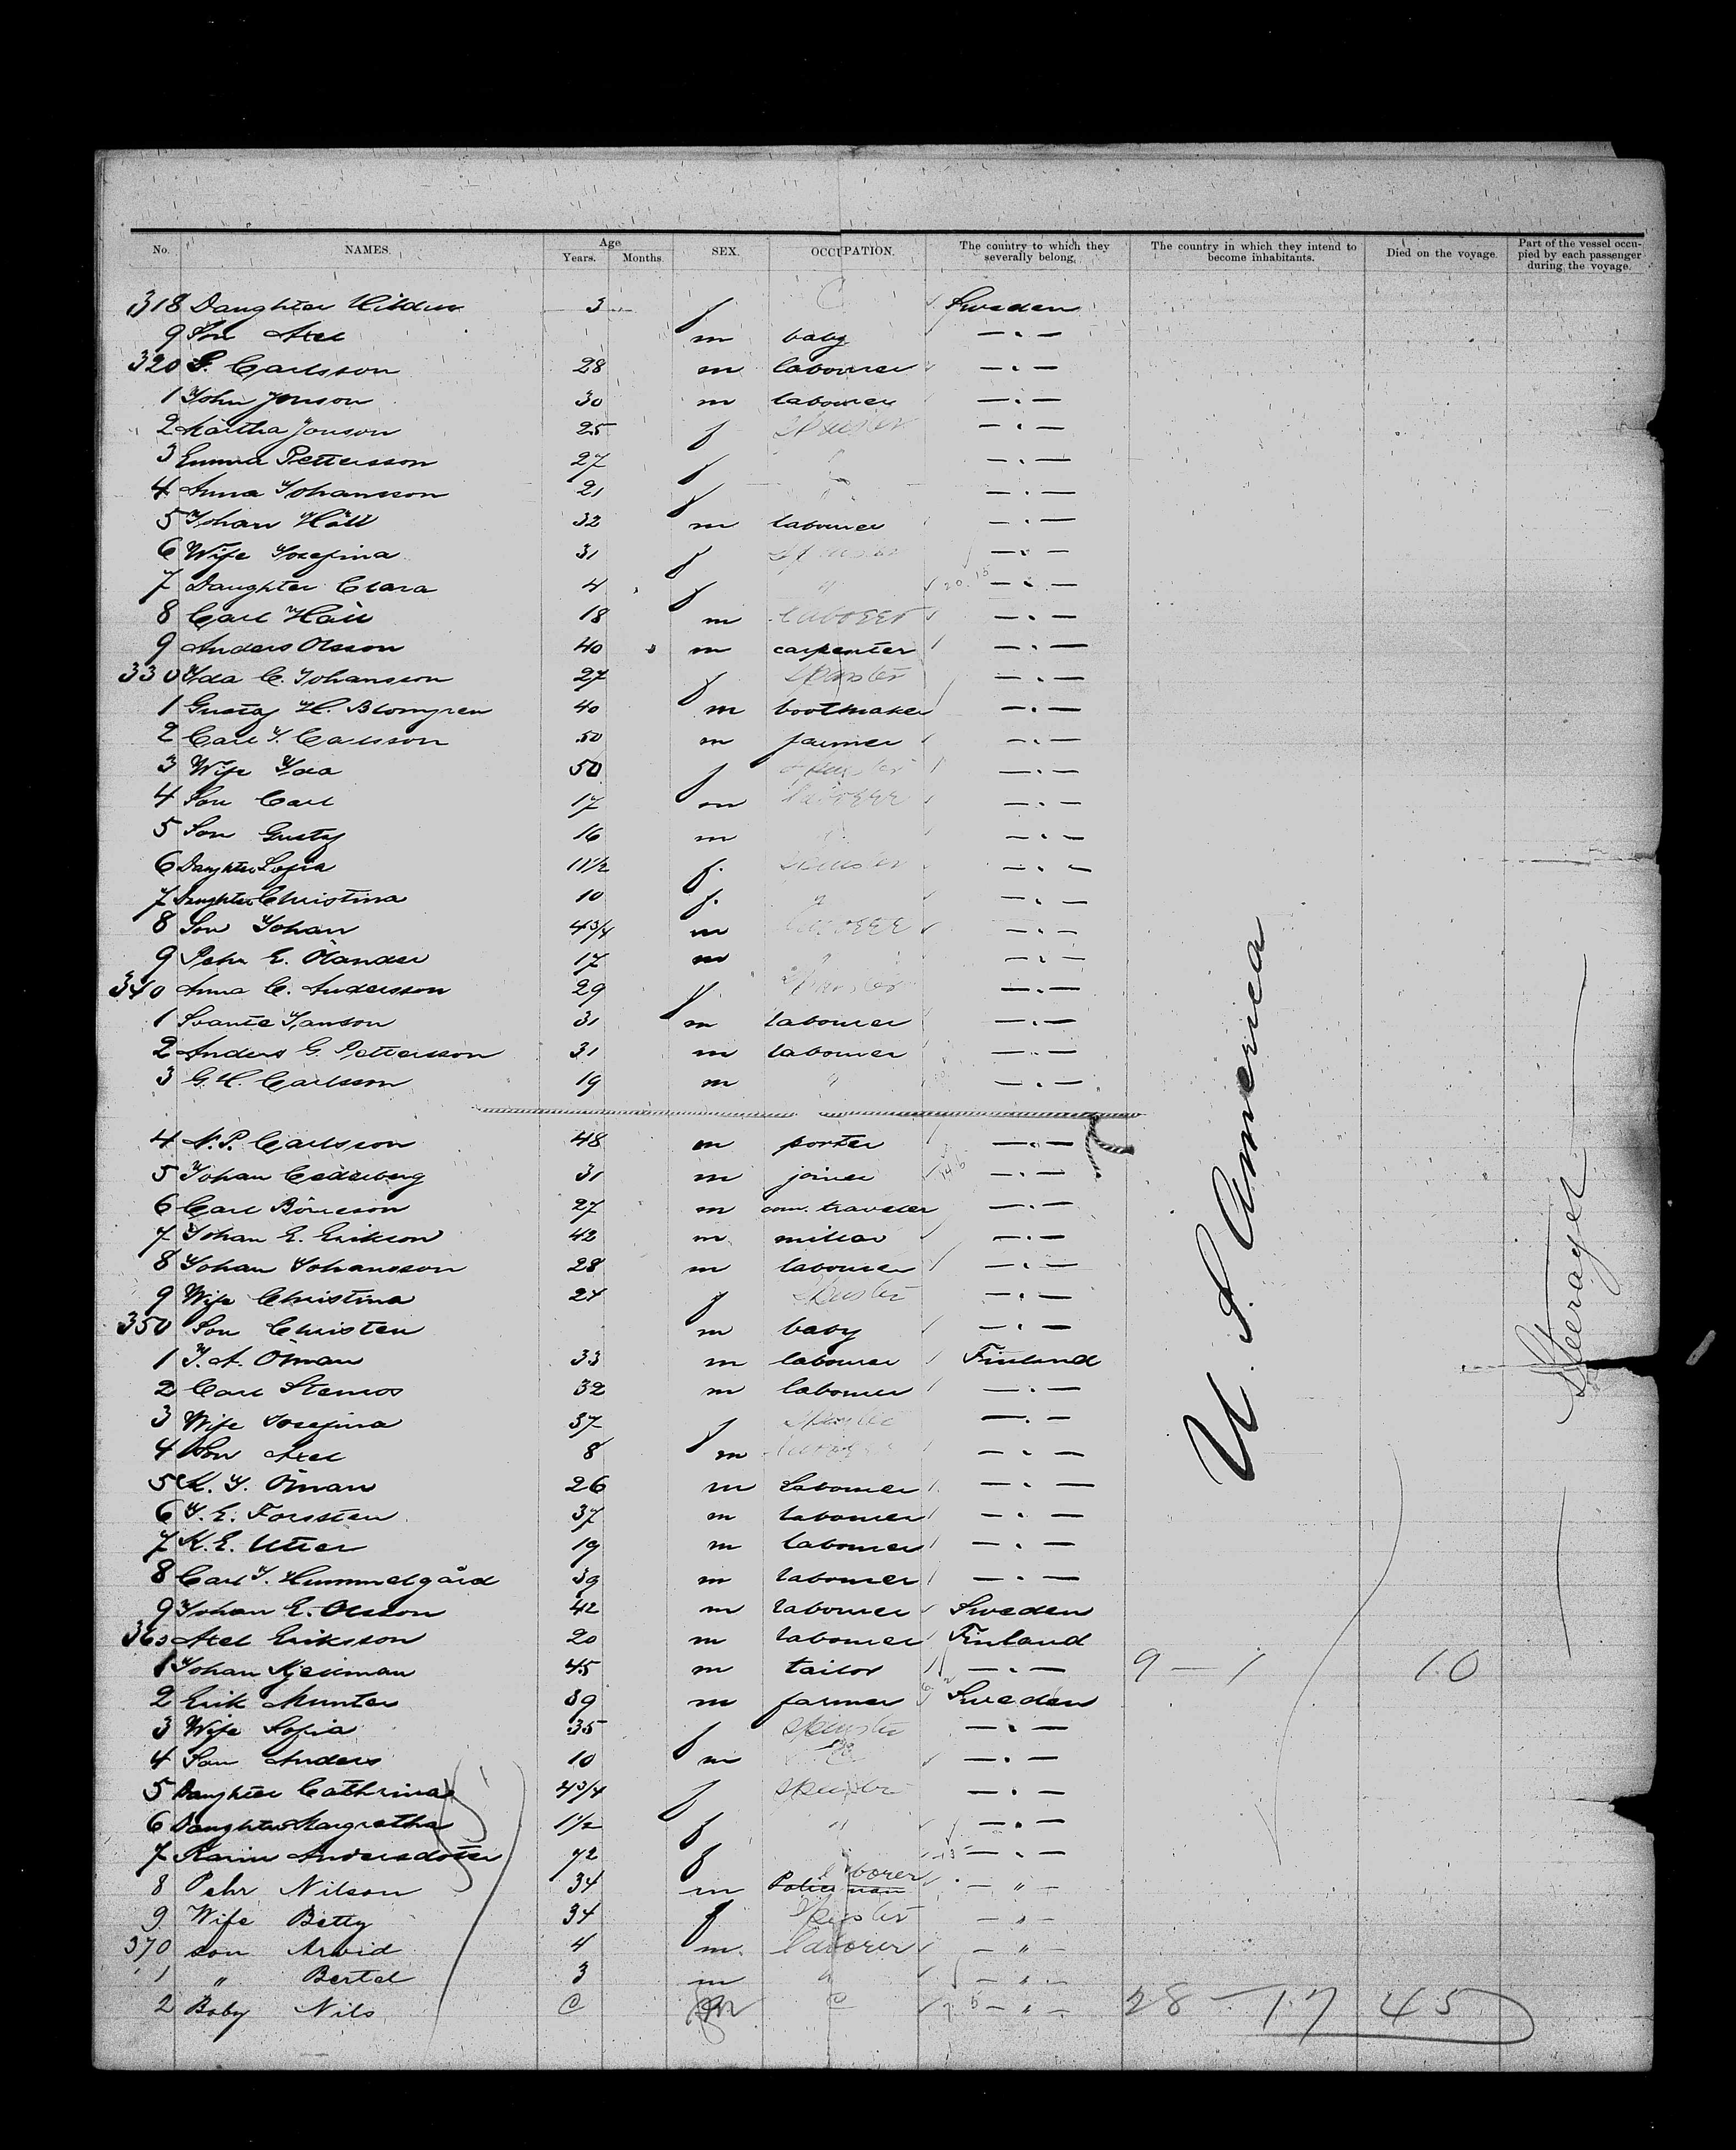 No. NAMES. Age Years. Months. SEX. OCCUPATION. The country to which they severally belong. The country in which they intend to become inhabitants. Died on the voyage. Part of the vessel occupied by each passenger during the voyage.
318 Daughter Hildur 3 f C Sweden
9 Son Axel m baby —.—
320 S. Carlsson 28 m labourer —.—
1 John Jonson 30 m labourer —.—
2 Martha Jonson 25 f Spinster —.—
3 Emma Pettersson 27 f " —.—
4 Anna Johansson 21 f " —.—
5 Johan Häll 32 m labourer —.—
6 Wife Josefina 31 f Spinster —.—
7 Daughter Clara 4 f " —.—
8 Carl Häll 18 m laborer —.—
9 Anders Olsson 40 m carpenter —.—
330 Ida C. Johansson 27 f Spinster —.—
1 Gustaf H. Blomgren 40 m bootmaker —.—
2 Carl J. Carlsson 50 m farmer —.—
3 Wife Ida 50 f Spinster —.—
4 Son Carl 17 m laborer —.—
5 Son Gustaf 16 m " —.—
6 Daughter Sofia 11 1/2 f. Spinster —.—
7 Daughter Christina 10 f. " —.—
8 Son Johan 4 3/4 m laborer —.—
9 Pehr E. Ölander 17 m —.—
340 Anna C. Andersson 29 f. Spinster —.—
1 Svante Janson 31 m labourer —.—
2 Anders G. Pettersson 31 m labourer —.—
3 G. H. Carlsson 19 m " —.—
4 N. P. Carlsson 48 m porter —.—
5 Johan Cederberg 31 m joiner —.—
6 Carl Börieson 27 m com. traveler —.—
7 Johan E. Erikson 42 m millar —.—
8 Johan Johansson 28 m labourer —.—
9 Wife Christina 24 f Spinster —.—
350 Son Christen m baby —.—
1 J. A. Öman 33 m labourer Finland
2 Carl Stenros 32 m labourer —.—
3 Wife Josefina 37 f Spinster —.—
4 Son Axel 8 m laborer —.—
5 M. J. Öman 26 m Labourer —.—
6 J. E. Forsten 37 m labourer —.—
7 K. E. Utter 19 m labourer —.—
8 Carl J. Hummelgård 39 m labourer —.—
9 Johan E. Olsson 42 m labourer Sweden
360 Axel Eriksson 20 m labourer Finland
1 Johan Njeuman 45 m tailor —.— 9 — 1 10
2 Erik Munter 39 m farmer Sweden
3 Wife Sofia 35 f Spinster —.—
4 Son Anders 10 m —.—
5 Daughter Cathrina 4 3/4 f Spinster —.—
6 Daughter Margretha 1 1/2 f " —.—
7 Karin Andersdotter 72 f —.—
8 Pehr Nilson 34 m Policeman laborer — " —
9 Wife Betty 34 f Spinster — " —
370 son Arvid 4 m. laborer — " —
1 " Bertel 3 m " — " —
2 Baby Nils C m C — " — 28 — 17 45
U. S. America
Steerage